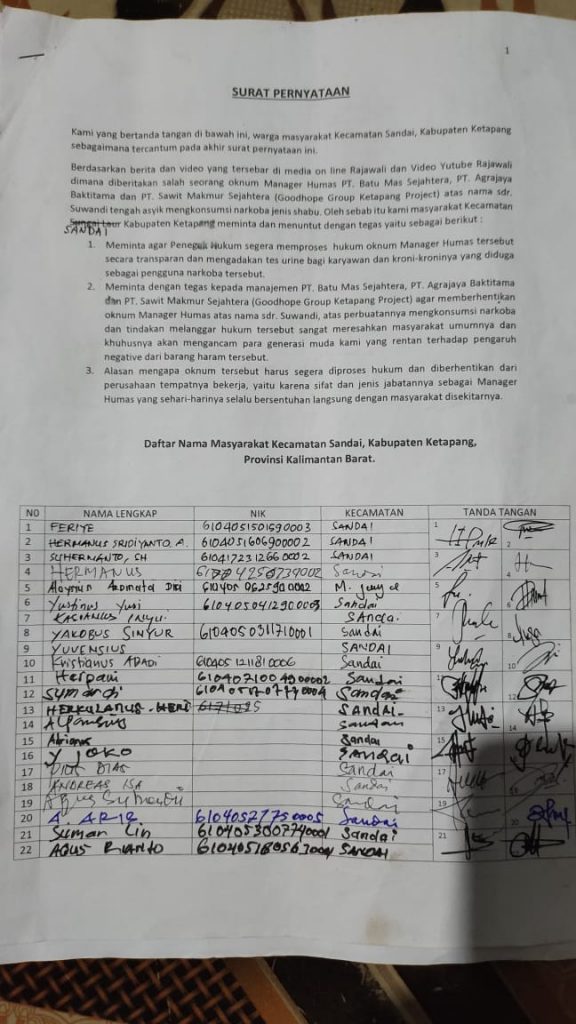 1
SURAT PERNYATAAN
Kami yang bertanda tangan di bawah ini, warga masyarakat Kecamatan Sandai, Kabupaten Ketapang
sebagaimana tercantum pada akhir surat pernyataan ini.
Berdasarkan berita dan video yang tersebar di media on line Rajawali dan Video Yutube Rajawali
dimana diberitakan salah seorang oknum Manager Humas PT. Batu Mas Sejahtera, PT. Agrajaya
Baktitama dan PT. Sawit Makmur Sejahtera (Goodhope Group Ketapang Project) atas nama sdr.
Suwandi tengah asyik mengkonsumsi narkoba jenis shabu. Oleh sebab itu kami masyarakat Kecamatan
Sungai Laur Kabupaten Ketapang meminta dan menuntut dengan tegas yaitu sebagai berikut :
SANDAI
1. Meminta agar Penegak Hukum segera memproses hukum oknum Manager Humas tersebut
secara transparan dan mengadakan tes urine bagi karyawan dan kroni-kroninya yang diduga
sebagai pengguna narkoba tersebut.
2. Meminta dengan tegas kepada manajemen PT. Batu Mas Sejahtera, PT. Agrajaya Baktitama
dan PT. Sawit Makmur Sejahtera (Goodhope Group Ketapang Project) agar memberhentikan
oknum Manager Humas atas nama sdr. Suwandi, atas perbuatannya mengkonsumsi narkoba
dan tindakan melanggar hukum tersebut sangat meresahkan masyarakat umumnya dan
khuhusnya akan mengancam para generasi muda kami yang rentan terhadap pengaruh
negative dari barang haram tersebut.
3. Alasan mengapa oknum tersebut harus segera diproses hukum dan diberhentikan dari
perusahaan tempatnya bekerja, yaitu karena sifat dan jenis jabatannya sebagai Manager
Humas yang sehari-harinya selalu bersentuhan langsung dengan masyarakat disekitarnya.
Daftar Nama Masyarakat Kecamatan Sandai, Kabupaten Ketapang,
Provinsi Kalimantan Barat.
NO NAMA LENGKAP NIK KECAMATAN TANDA TANGAN
1 FERIYE 6104051501590003 SANDAI 1
2 HERMANUS SRIDIYANTO. A. 6104051606900002 SANDAI 2
3 SUHERMANTO, SH 6104172312660002 SANDAI 3
4 HERMANUS Sandai 4
5 Aloysius 5
6 Yustinus Yusi 6104050412900003 Sandai 6
7 KASIANUS SANDAI. 7
8 YAKOBUS SINYUR 6104050311710001 Sandai 8
9 YUVENSIUS SANDAI 9
10 Kristianus ADADI 6104051211810006 Sandai 10
11 Herpani 6104071004900002 Sandai 11
12 Sandai 12
13 HERKULANUS. HERI SANDAI. 13
14 Alfonsus 14
15 Sandai 15
16 Y JOKO SANDAI
17 PIUS DIAS Sandai 17
18 ANDREAS ISA Sandai 18
19 Agus Sandai 19
20 A. ARIS. Sandai 20
21 Suman Lin 6104053007740001 Sandai 21
22 AGUS RIANTO SANDAI